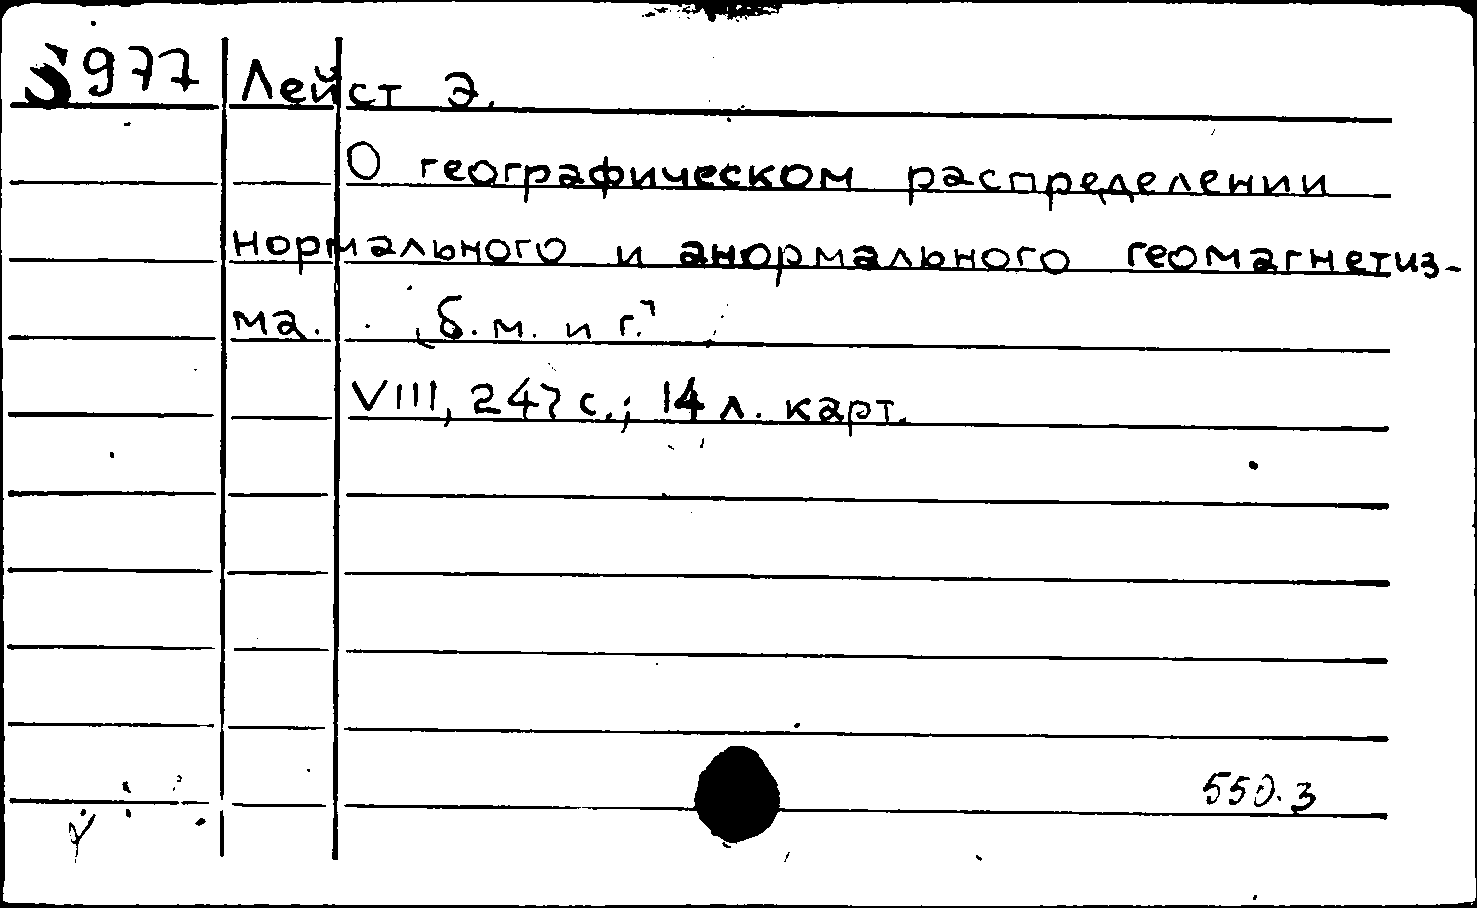 5977 Лейст Э.
О географическом распределении
нормального и анормального геомагнетиз-
ма. [б.м. и г.]
VIII, 247 с.; 14 л. карт.
550.3